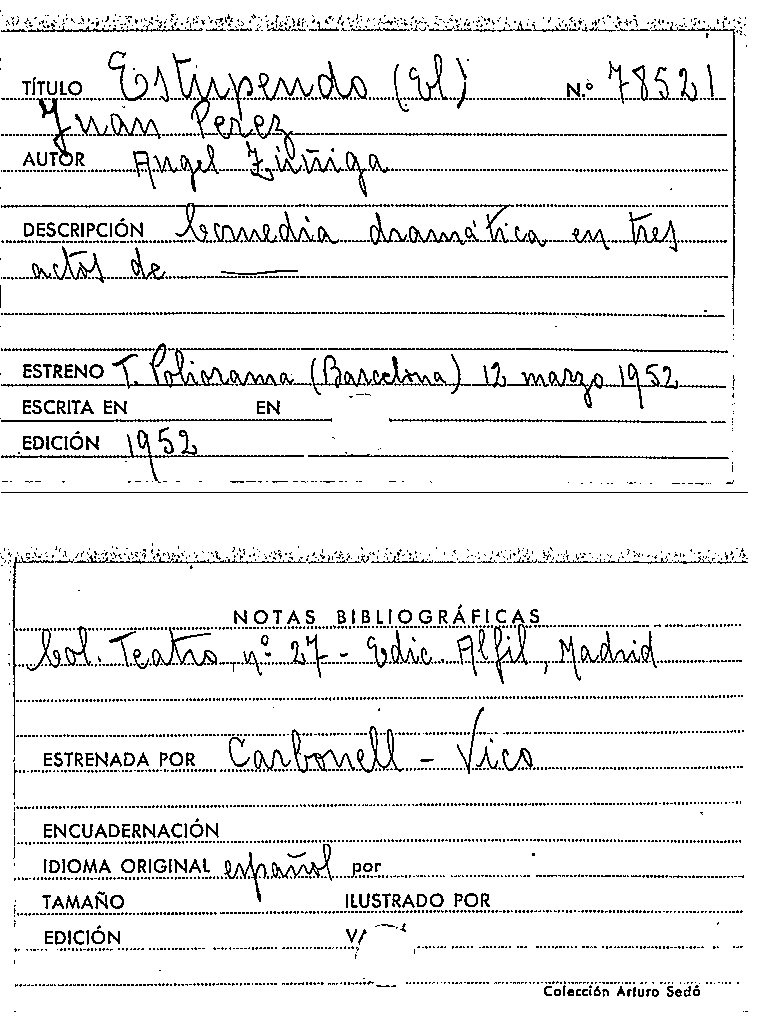 TÍTULO Estupendo (El) N.º 78521
Juan Perez
AUTOR Angel Zúñiga
DESCRIPCIÓN Comedia dramática en tres
actos de ———
ESTRENO T. Poliorama (Barcelona) 12 marzo 1952
ESCRITA EN EN
EDICIÓN 1952
NOTAS BIBLIOGRÁFICAS
Col. Teatro, nº 27 - Edic. Alfil, Madrid
ESTRENADA POR Carbonell - Vico
ENCUADERNACIÓN
IDIOMA ORIGINAL español por
TAMAÑO ILUSTRADO POR
EDICIÓN V/
Colección Arturo Sedó